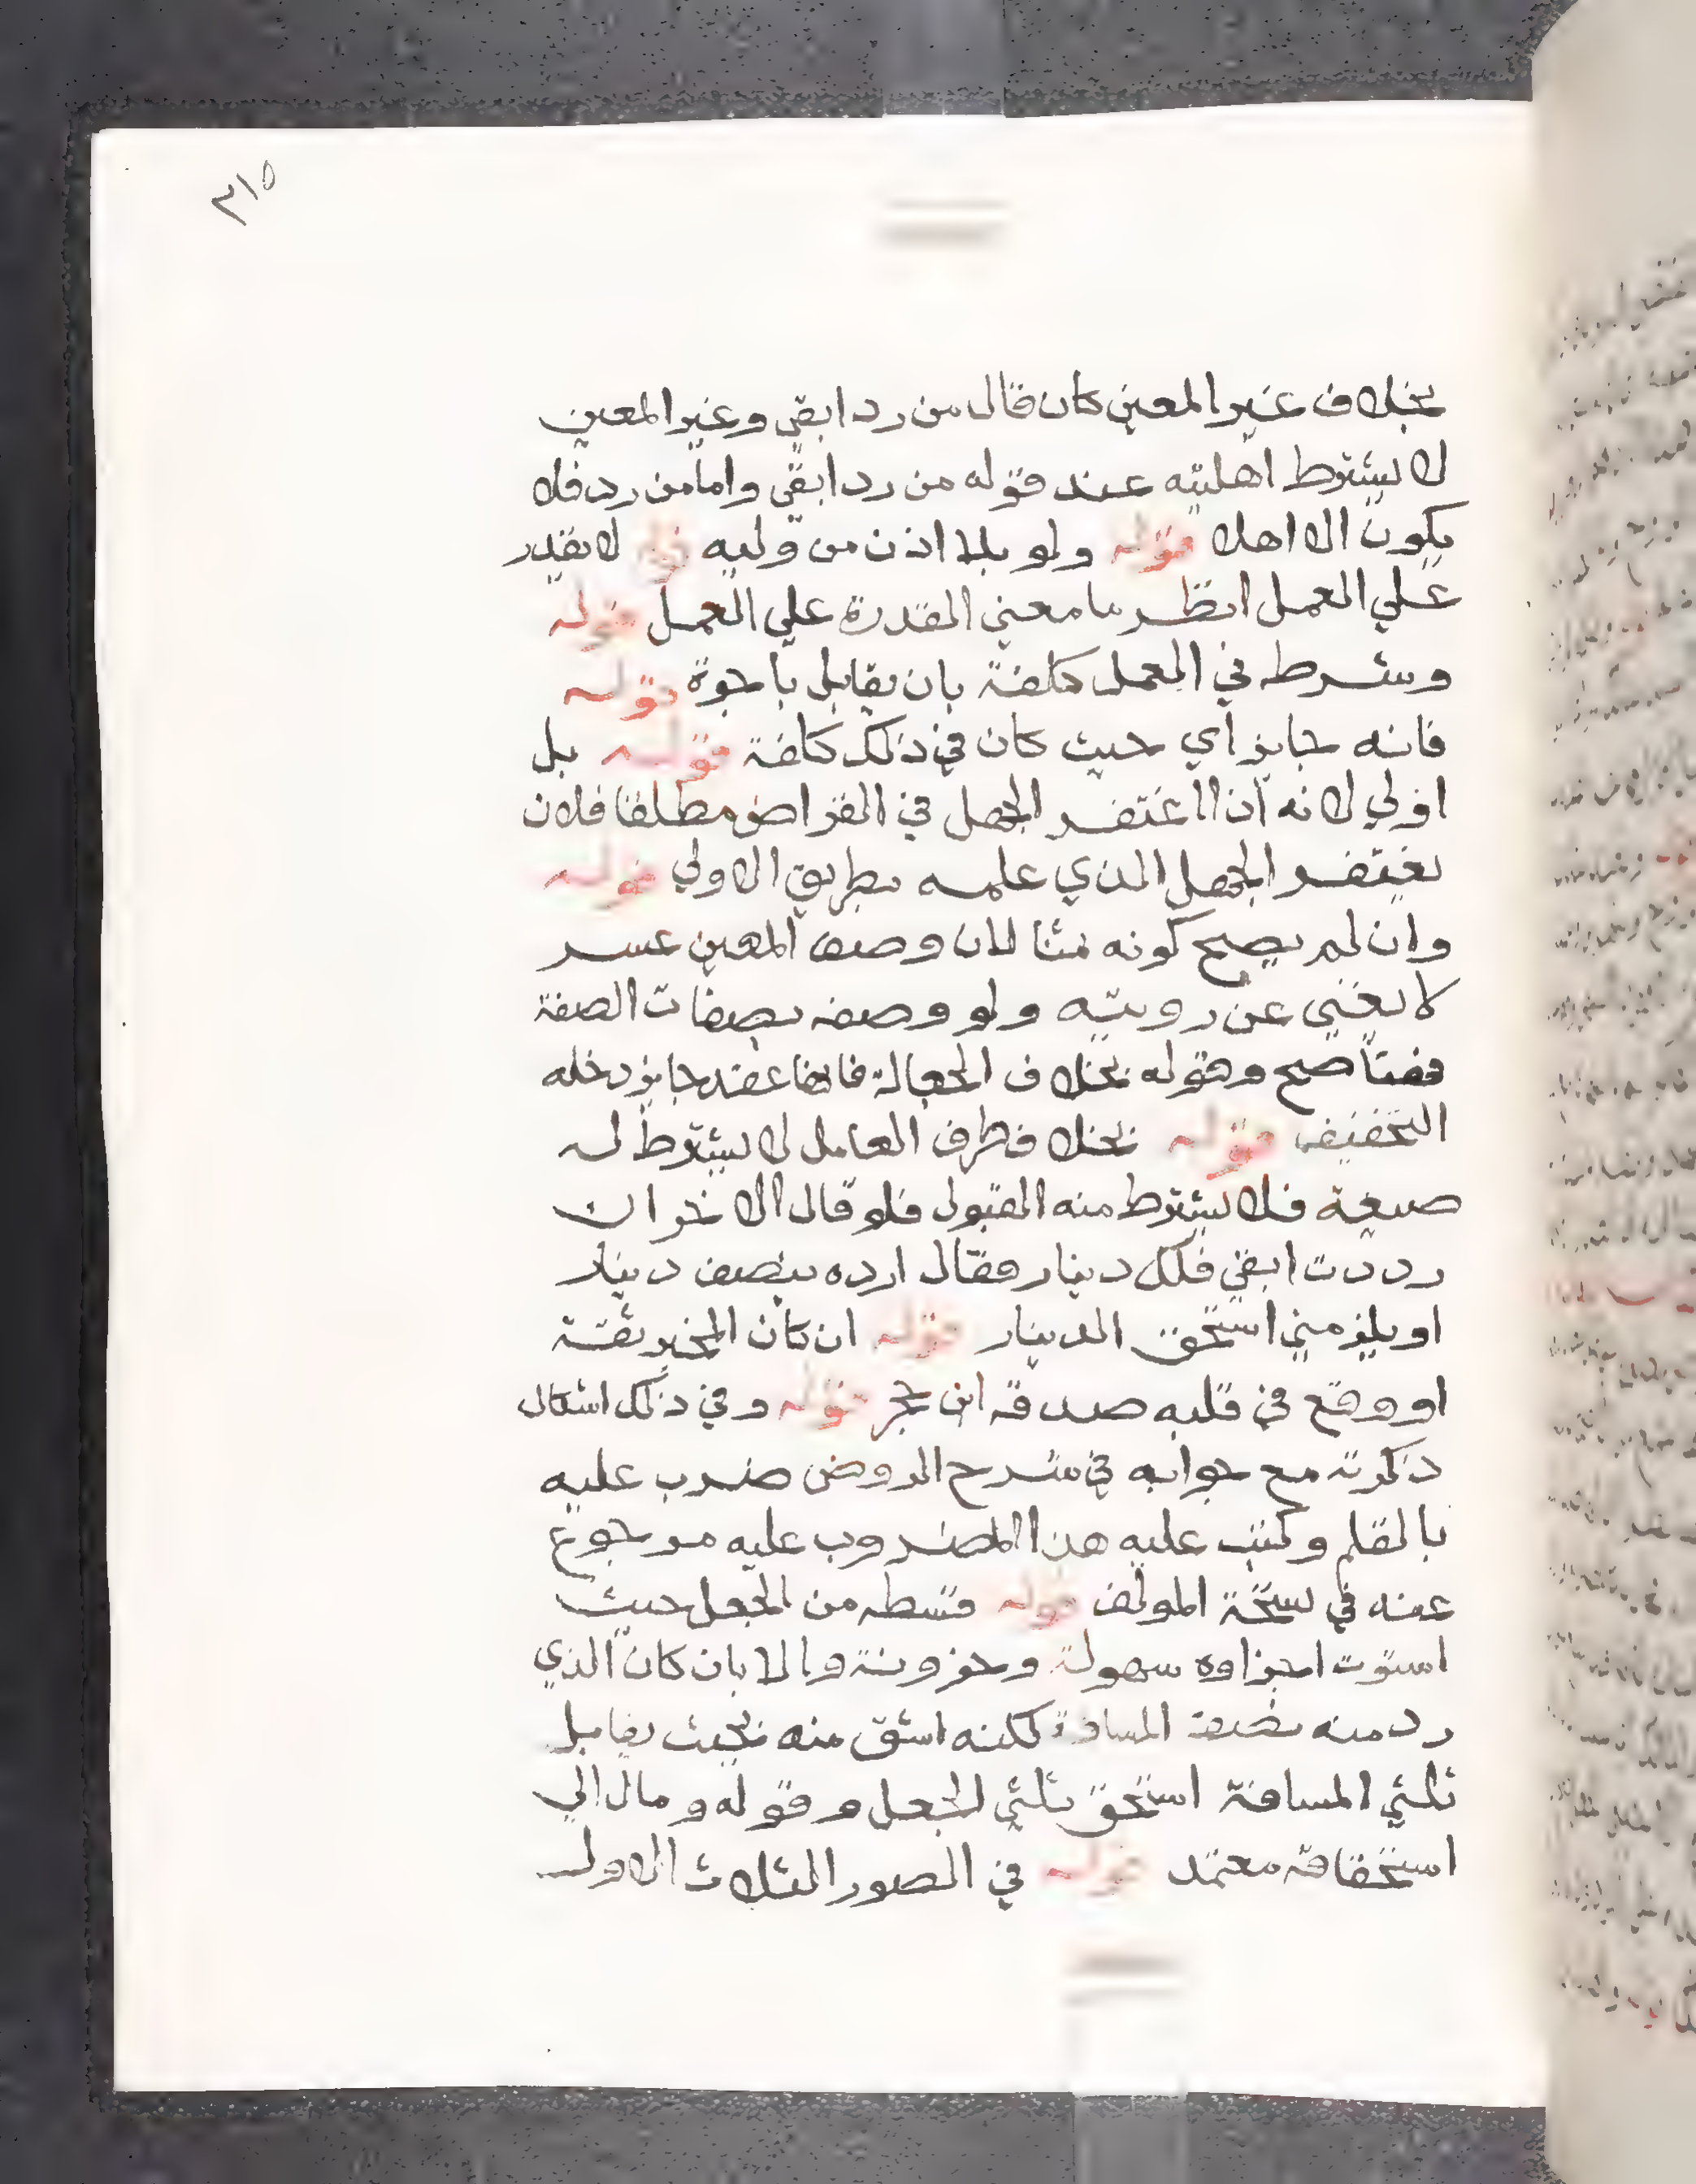 ٣١٥
بخلاف غير المعين كان قال من رد ابقي وغير المعين
لا يشترط اهليته عند قوله من رد ابقي واما من رد فلا
يكون الا اهلا قوله ولو بلا اذن من وليه قوله لا تقدر
علي العمل انظر ما معني القدرة علي العمل قوله
وشرط في العمل كلفة بان يقابل باجرة قوله
فانه جايز اي حيث كان في ذلك كلفة قوله بل
اولي لانه اذا اغتفر الجهل في القراض مطلقا فلان
يغتفر الجهل الذي علمه بطريق الاولي قوله
وان لم يصح كونه ثمنا لان وصف المعين عسر
لا يغني عن رويته ولو وصفه بصفات الصفة
صح وقوله بخلاف الجعالة فانها عقد جايز دخله
التخفيف قوله بخلاف طرف العامل لا يشترط له
صيغة فلا يشترط منه القبول فلو قال الاخر ان
رددت ابقي فلك دينار فقال ارده بنصف دينار
او يلزمني استحق الدينار قوله ان كان المخبر ثقة
او وقع في قلبه صدقه ابن حجر قوله وفي ذلك اشكال
ذكرته مع جوابه في شرح الروض ضرب عليه
بالقلم وكتب عليه هذا المضروب عليه مرجوع
عنه في نسخة المولف قوله قسطه من الجعل حيث
استوت اجزاوه سهولة وحزونة والا بان كان الذي
رد منه نصف المسافة لكنه اشق منه بحيث يقابل
ثلثي المسافة استحق ثلثي الجعل وقوله ومال الي
استحقاقه معتمد قوله في الصور الثلاث الاول